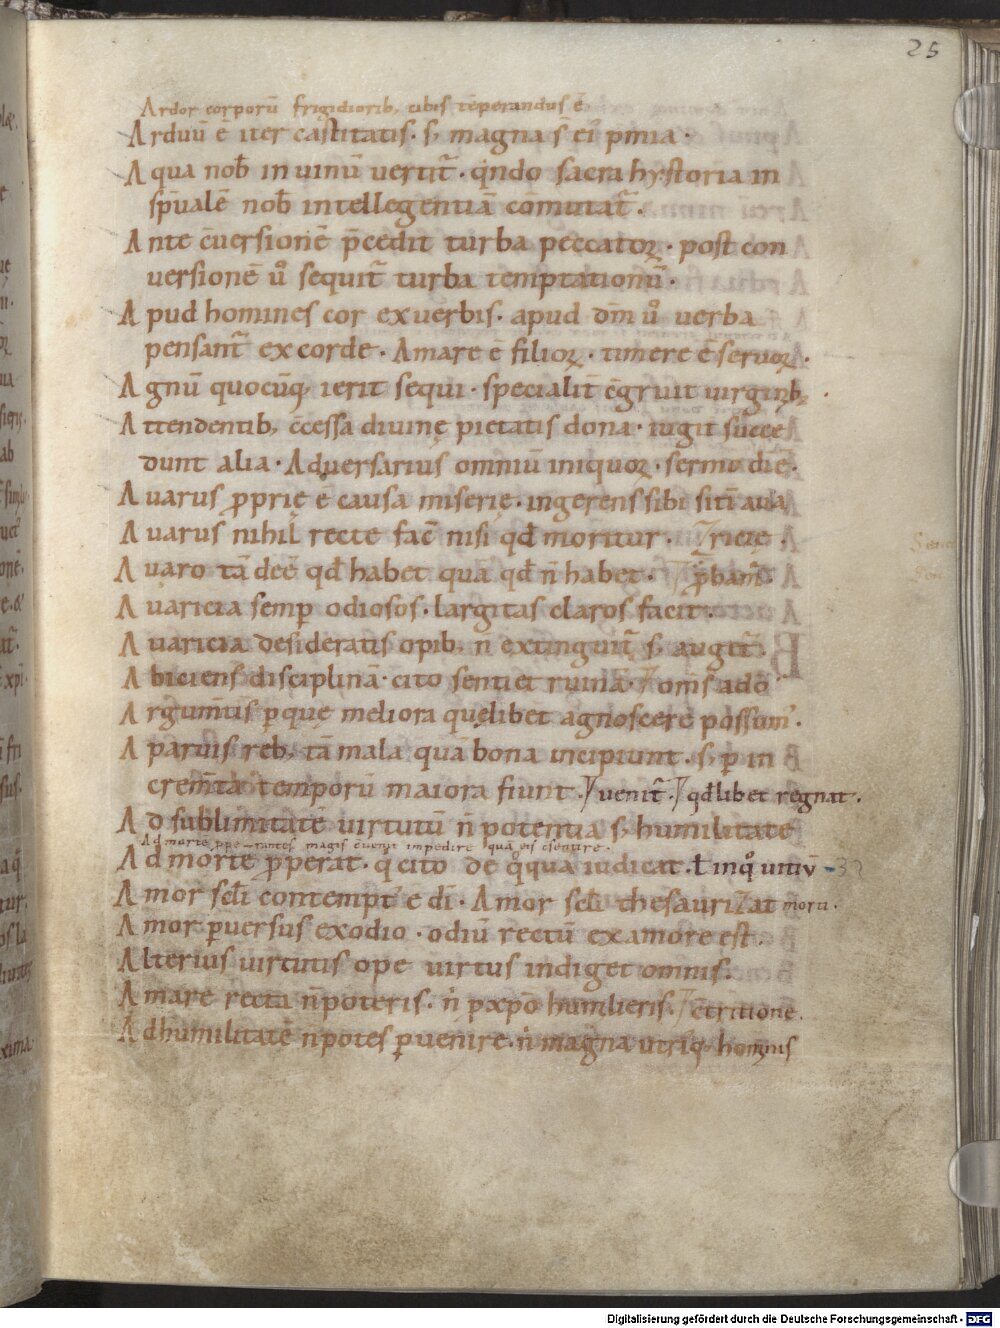 25
Ardor corporū frigidiorib; cibis tēperandus ē
Arduū ē iter castitatis· s; magna s̄ ei᷒ p̄mia·
Aqua nob̄ in uinū vertit᷒· q̄ndo sacra hystoria in
sp̄ualē nob̄ intellegentiā cōmutat᷒·
Ante c̄uersionē p̄cedit turba peccatoꝝ· post con
versionē ů sequit᷒ turba temptationū·
Apud homines cor ex verbis· apud dm̄ ů verba
pensant᷒ ex corde· Amare ē filioꝝ· timere ē servoꝝ·
Agnū quocūq; ierit sequi· specialit̄ c̄gruit uirginib;
Attendentib; c̄cessa divinę pietatis dona· iugit̄ succe
dunt alia· Aduersarius omniū iniquoꝝ· sermo di ē·
Avarus ꝓprię ē causa miserię· ingerens sibi sitī aua
Avarus nihil recte fac̄ nisi qd̄ moritur· ricię·
Avaro tā deē qd̄ habet quā qd̄ n̄ habet· ꝓbam᷒·
Avaricia semꝑ odiosos· largitas claros facit·
Avaricia desideratis opib; n̄ extinguit᷒ s; augit᷒·
Abiciens disciplinā· cito sentiet ruinā· om̄s ado
Argum̄tis ꝑque meliora quęlibet agnoscere possum᷒·
A parvis reb; tā mala quā bona incipiunt· s; ꝑ in
crem̄ta temporū maiora fiunt· venit᷒· qd̄libet regnat·
Ad sublimitatē uirtutū n̄ potentia s; humilitate
Ad mortē ꝓperantes magis cuenit impedire quā eis c̄sentire·
Ad mortē ꝓperat· q̇ cito de q̊qua iudicat· ł inq̊ vitiū
Amor scl̄i contempt᷒ ē dī· Amor scl̄i thesaurizat
Amor ꝑversus ex odio· odiū rectū ex amore est·
Alterius uirtutis ope virtus indiget omnis·
Amare recta n̄ poteris· n̄ p̄ xp̄o humilieris· c̄tritione·
Ad humilitatē n̄ potes ꝑvenire· n̄ magna utriq; hominis